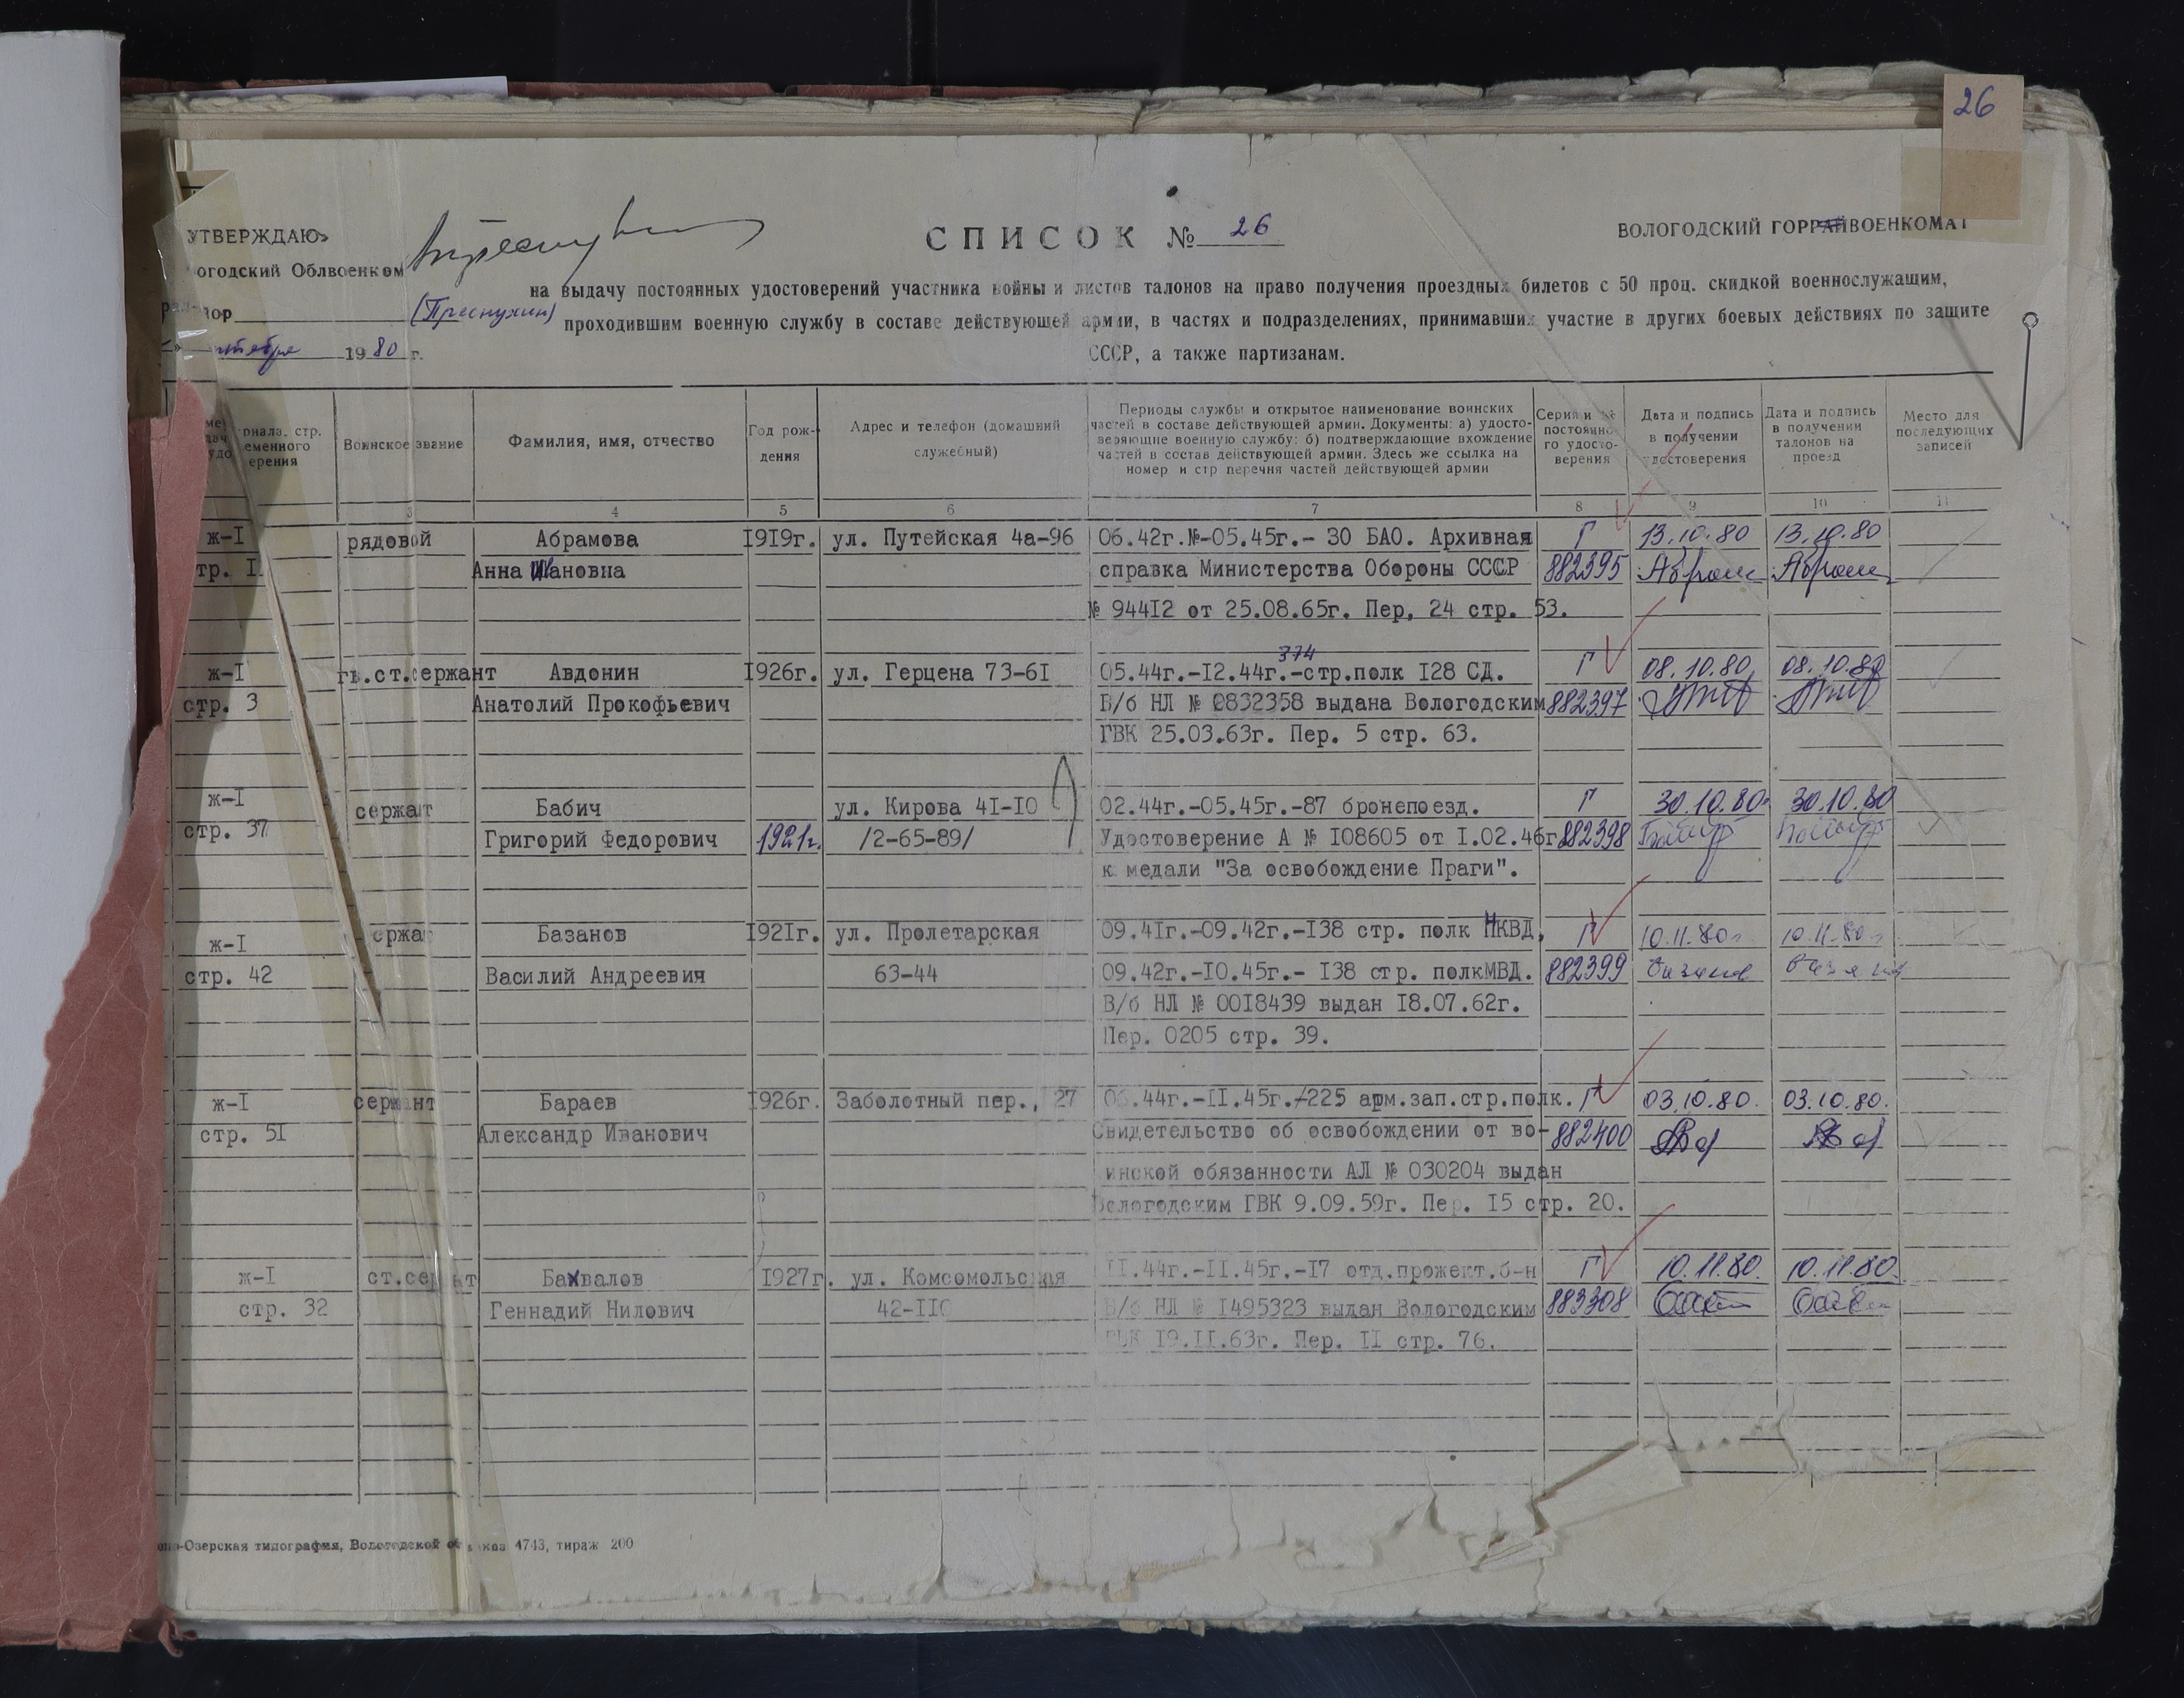 26
УТВЕРЖДАЮ»
СПИСОК № 26
ВОЛОГОДСКИЙ ГОРРАЙВОЕНКОМАТ
огодский Облвоенком
(Преснухин)
на выдачу постоянных удостоверений участника войны и листов талонов на право получения проездных билетов с 50 проц. скидкой военнослужащим,
проходившим военную службу в составе действующей армии, в частях и подразделениях, принимавших участие в других боевых действиях по защите
СССР, а также партизанам.
1980 г.
рнала, стр.
еменного
ерения
Воинское звание
Фамилия, имя, отчество
Год рож-
дения
Адрес и телефон (домашний
служебный)
Периоды службы и открытое наименование воинских
частей в составе действующей армии. Документы: а) удосто-
веряющие военную службу: б) подтверждающие вхождение
частей в состав действующей армии. Здесь же ссылка на
номер и стр перечня частей действующей армии
Серия и №
постоянно
го удосто-
верения
Дата и подпись
в получении
удостоверения
Дата и подпись
в получении
талонов на
проезд
Место для
последующих
записей
3 4 5 6 7 8 9 10 11
ж-I рядовой Абрамова 1919г. ул. Путейская 4а-96 06.42г.№-05.45г.- 30 БАО. Архивная Г 13.10.80 13.10.80
тр. I Анна Ивановна справка Министерства Обороны СССР 882395
№ 94412 от 25.08.65г. Пер, 24 стр. 53.
374
ж-I гв.ст.сержант Авдонин 1926г. ул. Герцена 73-61 05.44г.-12.44г.-стр.полк 128 СД. Г 08.10.80 08.10.80
стр. 3 Анатолий Прокофьевич В/б НЛ № 0832358 выдана Вологодским 882397
ГВК 25.03.63г. Пер. 5 стр. 63.
ж-I сержант Бабич ул. Кирова 41-10 02.44г.-05.45г.-87 бронепоезд. Г 30.10.80 30.10.80
стр. 37 Григорий Федорович 1921г. /2-65-89/ Удостоверение А № 108605 от 1.02.46г 882398
к медали "За освобождение Праги".
ж-I ержа Базанов 1921г. ул. Пролетарская 09.41г.-09.42г.-138 стр. полк НКВД, Г 10.11.80г 10.11.80г
стр. 42 Василий Андреевич 63-44 09.42г.-10.45г.- 138 стр. полкМВД. 882399
В/б НЛ № 0018439 выдан 18.07.62г.
Пер. 0205 стр. 39.
ж-I сержант Бараев 1926г. Заболотный пер., 27 06.44г.-11.45г.-225 арм.зап.стр.полк. Г 03.10.80. 03.10.80.
стр. 51 Александр Иванович Свидетельство об освобождении от во- 882400
инской обязанности АЛ № 030204 выдан
Вологодским ГВК 9.09.59г. Пер. 15 стр. 20.
ж-I ст.се ат Бахвалов 1927г. ул. Комсомольская 11.44г.-11.45г.-17 отд.прожект.б-н Г 10.11.80. 10.11.80.
стр. 32 Геннадий Нилович 42-110 В/б НЛ № 1495323 выдан Вологодским 883308
ГВК 19.11.63г. Пер. 11 стр. 76.
-Озерская типография, Вологодской об каз 4743, тираж 200